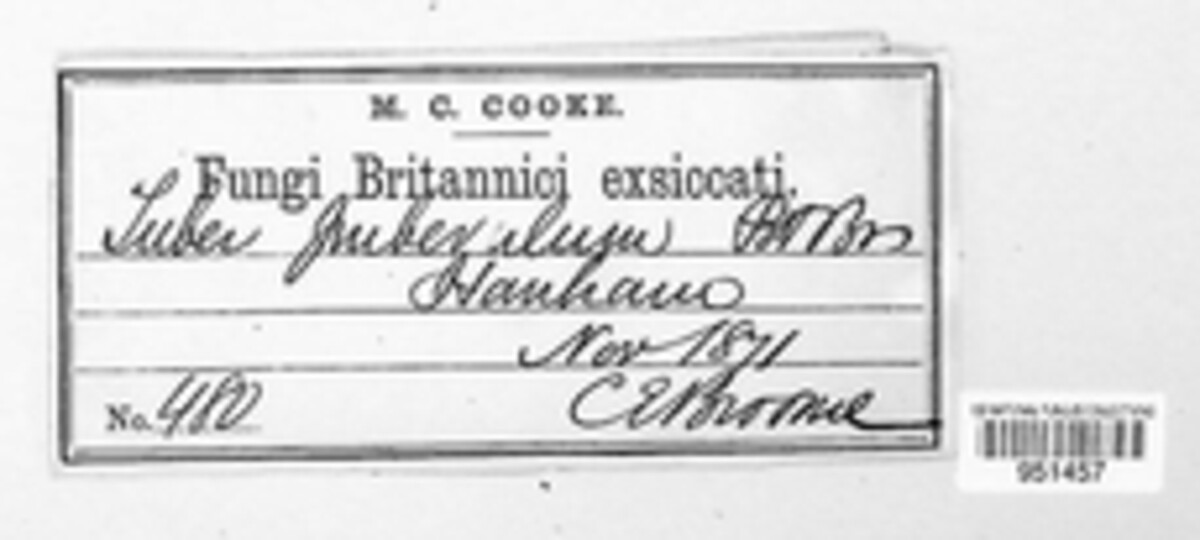 M. C. COOKE.
Fungi Britannici exsiccati.
Tuber puberulum B & Br
Hanham
Nov 1871
No. 480
C E Broome
951457